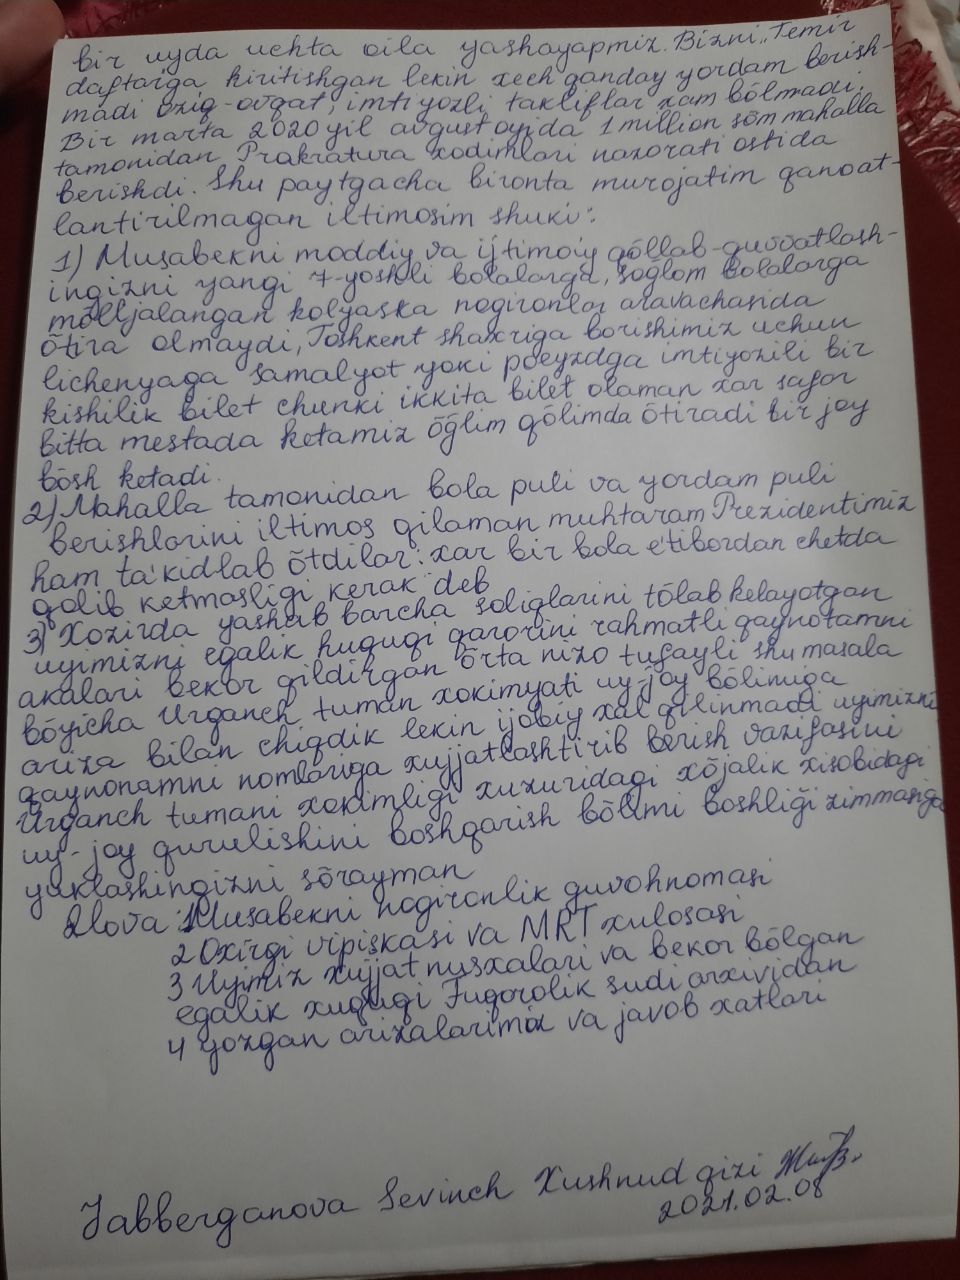 bir uyda uchta oila yashayapmiz. Bizni „Temir
daftarga kiritishgan lekin xech qanday yordam berish-
madi oziq-ovqat, imtiyozli takliflar xam bõlmadi.
Bir marta 2020 yil avgust oyida 1 million sõm mahalla
tamonidan Prakratura xodimlari nazorati ostida
berishdi. Shu paytgacha bironta murojatim qanoat-
lantirilmagan iltimosim shuki:
1) Musabekni moddiy va ijtimoiy qõllab-quvvatlash-
ingizni yangi 7-yoshli bolalarga, soglom bolalarga
mõlljalangan kolyaska nogironlar aravachasida
õtira olmaydi, Toshkent shaxriga borishimiz uchun
lichenyaga samalyot yoki poeyzdga imtiyozili bir
kishilik bilet chunki ikkita bilet olaman xar safar
bitta mestada ketamiz õğlim qõlimda õtiradi bir joy
bõsh ketadi.
2) Mahalla tamonidan bola puli va yordam puli
berishlarini iltimos qilaman muhtaram Prezidentimiz
ham ta'kidlab õtdilar: xar bir bola e'tibordan chetda
qolib ketmasligi kerak deb
3) Xozirda yashab barcha soliqlarini tõlab kelayotgan
uyimizni egalik huquqi qarorini rahmatli qaynotamni
akalari bekor qildirgan õrta nizo tufayli shu masala
bõyicha Urganch tuman xokimyati uy-joy bõlimiga
ariza bilan chiqdik lekin ijobiy xal qilinmadi uyimizni
qaynonamni nomlariga xujjatlashtirib berish vazifasini
Urganch tumani xokimligi xuzuridagi xõjalik xisobidagi
uy-joy qurulishini boshqarish bõlimi boshliği zimmasiga
yuklashingizni sõrayman
Ilova: 1 Musabekni nogironlik guvohnomasi
2 Oxirgi vipiskasi va MRT xulosasi
3 Uyimiz xujjat nusxalari va bekor bõlgan
egalik xuquqi Fuqorolik sudi arxividan
4 yozgan arizalarimiz va javob xatlari
Jabberganova Sevinch Xushnud qizi
2021.02.08